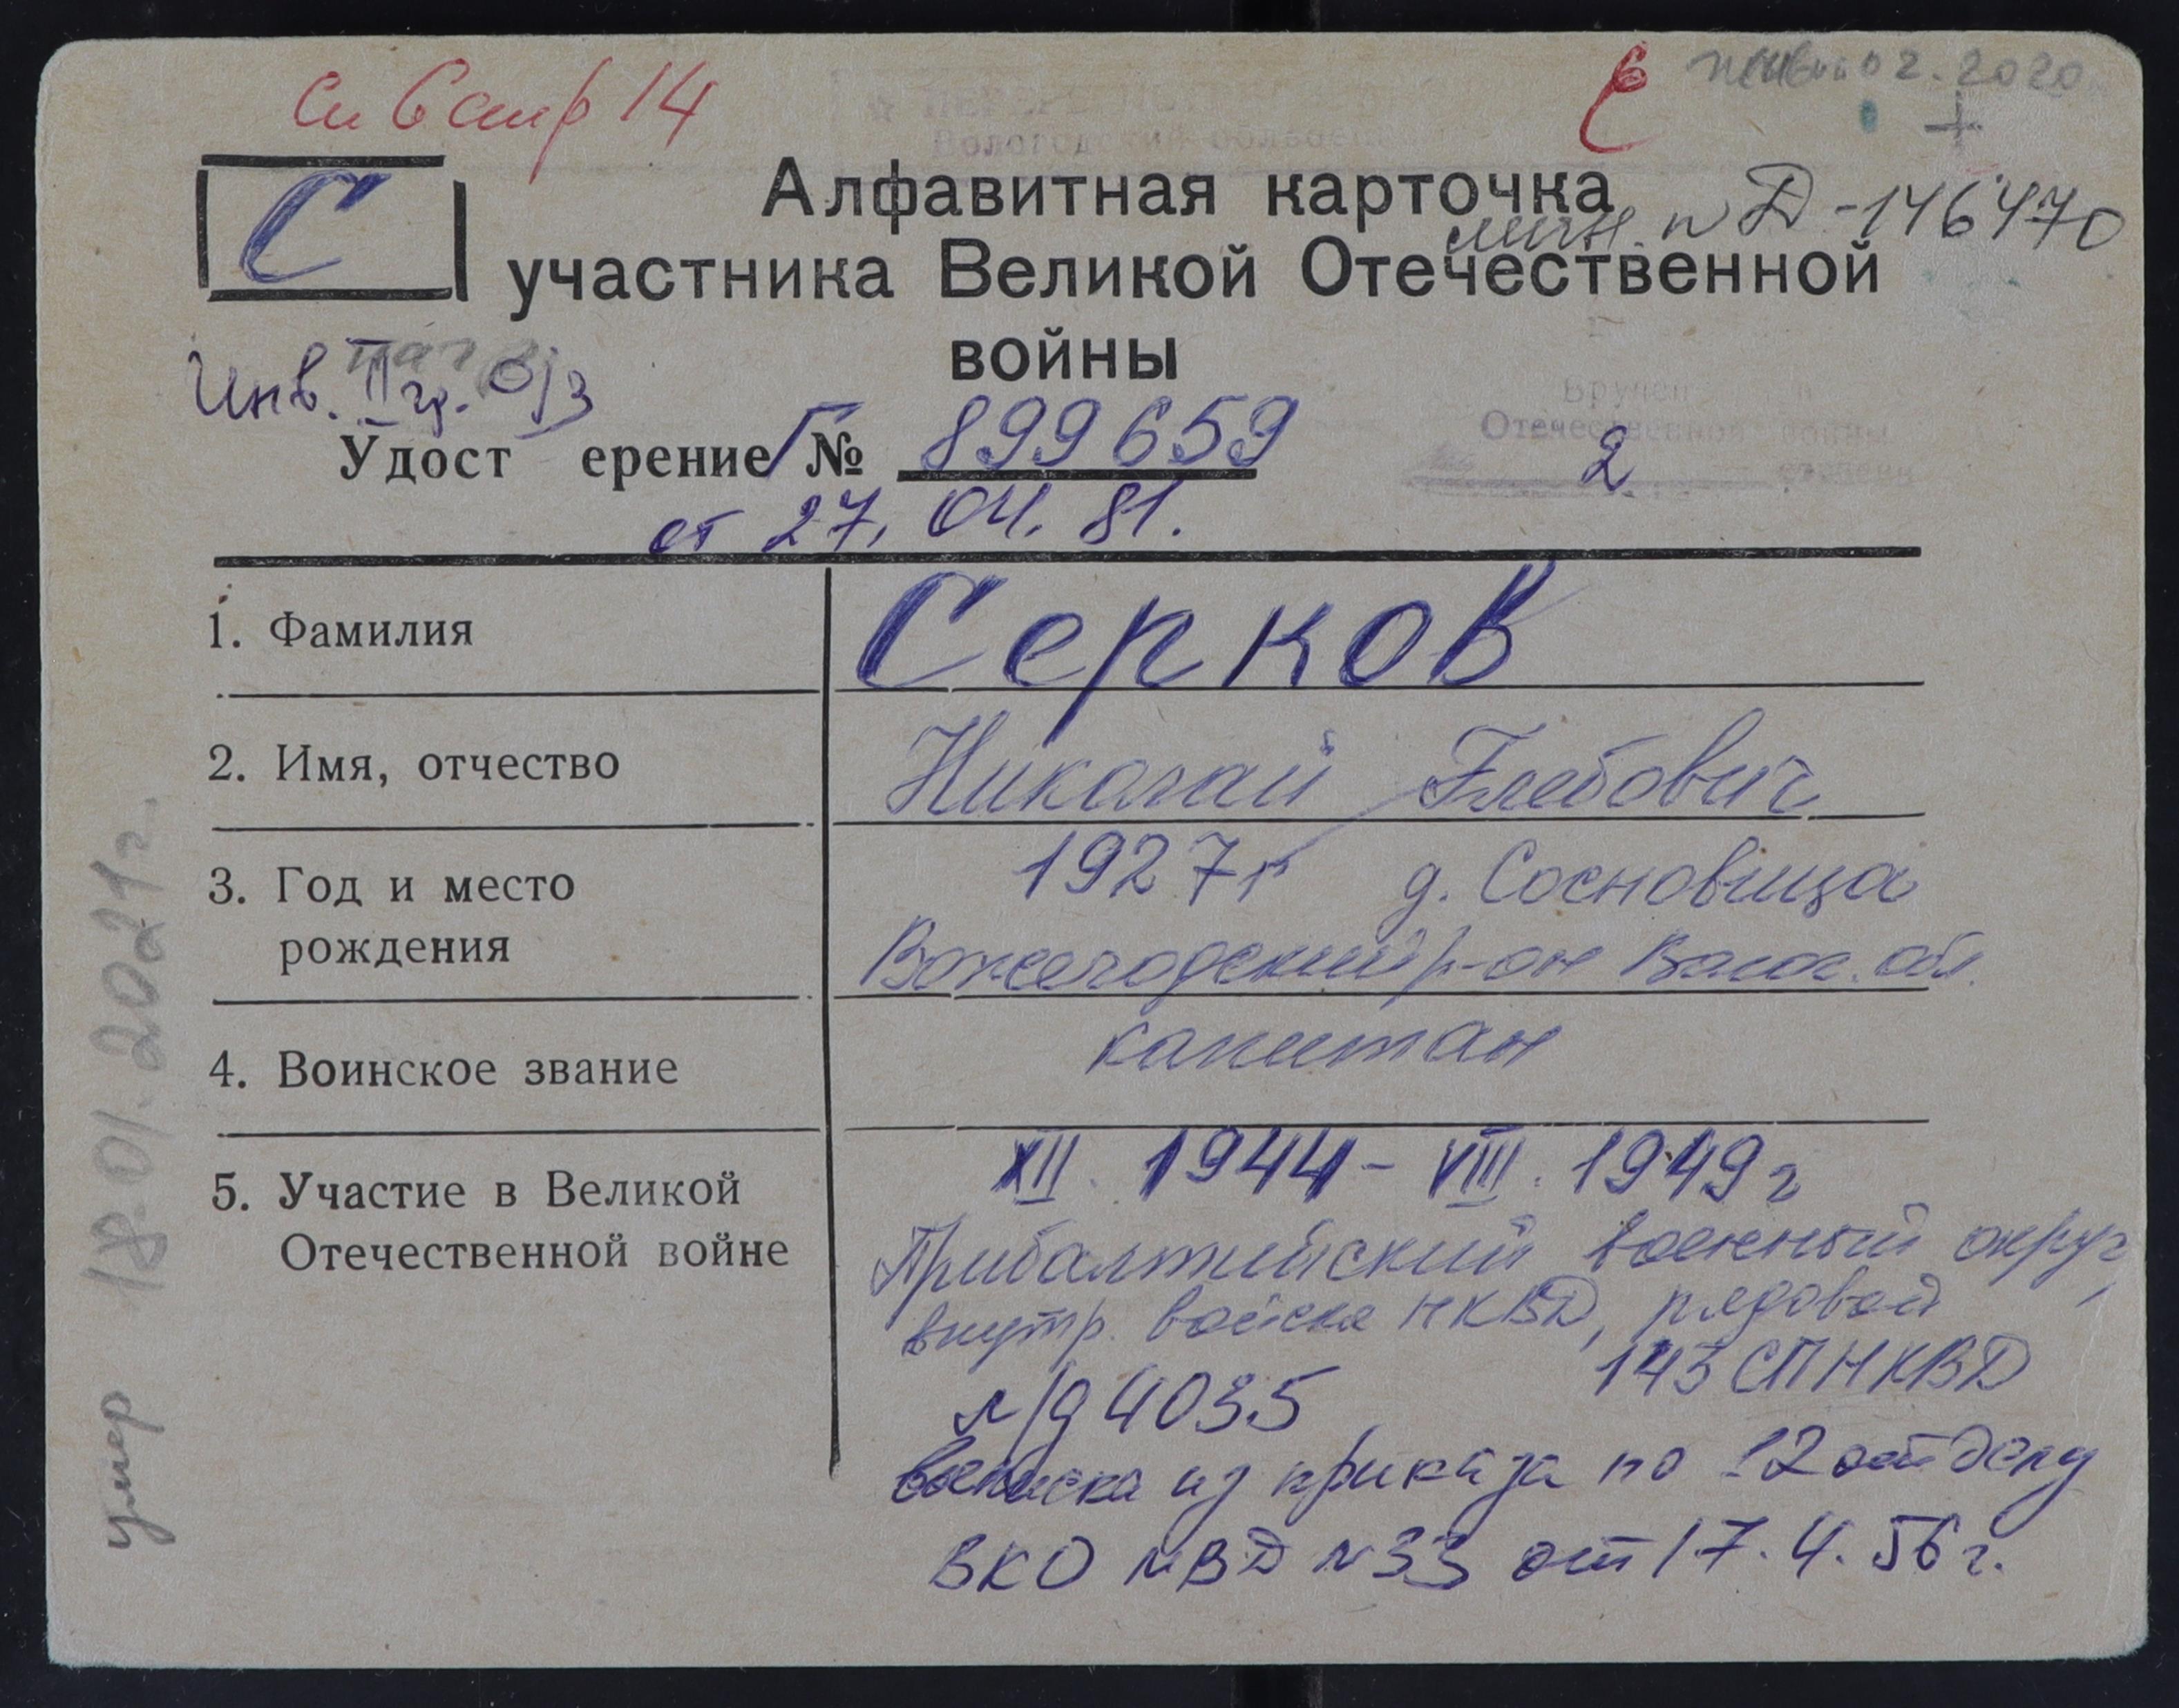 Сп 6 стр 14
жив 02.2020
+
С
Алфавитная карточка
личн. № Д-146470
участника Великой Отечественной
войны
Инв. II гр. о/з
Вручен
Отечественной войны
2 степени
Удост ерение Г № 899659
от 27.04.81.
1. Фамилия
Серков
2. Имя, отчество
Николай Глебович
3. Год и место
рождения
1927 г д. Сосновица
Вожегодский р-он Волог. обл.
4. Воинское звание
капитан
5. Участие в Великой
Отечественной войне
XII. 1944 - VIII. 1949 г
Прибалтийский военный округ,
внутр. войска НКВД, рядовой
143 СП НКВД
л/д 4035
выписка из приказа по 12 отделу
ВКО МВД №33 от 17.4.56 г.
умер 18.01.2021 г.